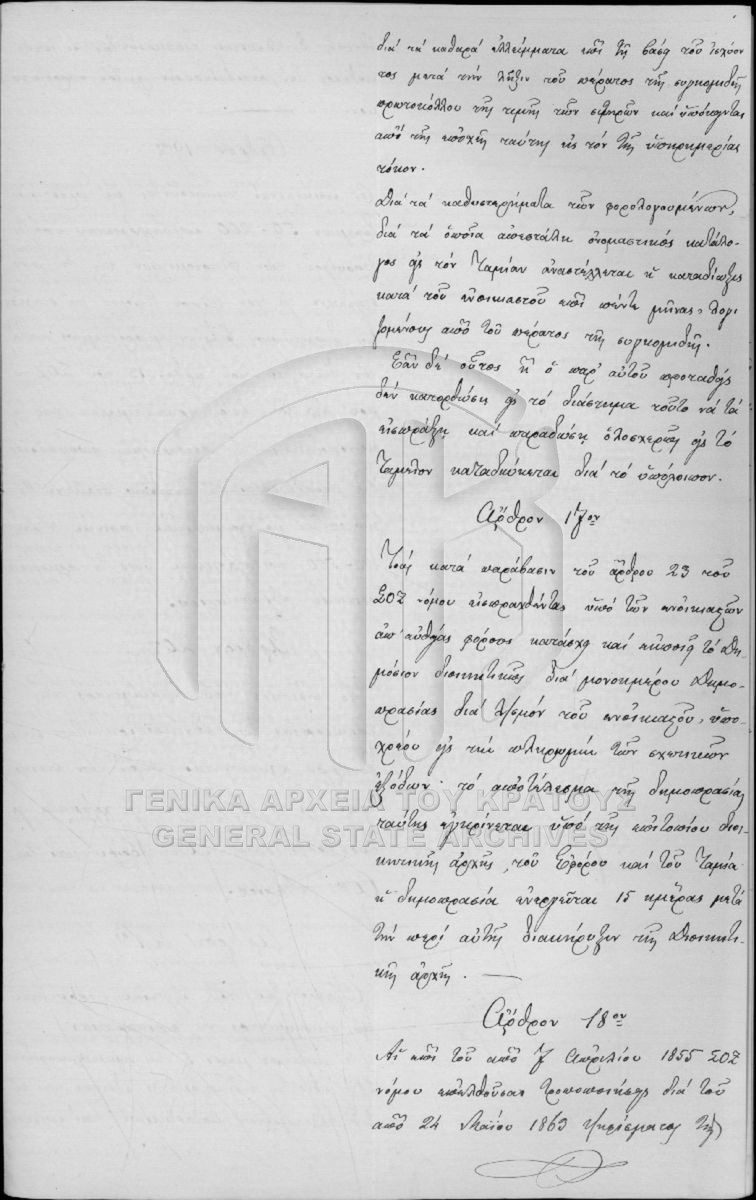 διά τά καθαρά ἐλλείμματα ἐπί τῇ βάσῃ τοῦ ἰσχύον
τος μετά τήν λῆξιν τοῦ πέρατος τῆς συγκομιδῆς
πρωτοκόλλου τῆς τιμῆς τῶν σιτηρῶν καί ὑπόκηνται
ἀπό τῆς ἐποχῆς ταύτης εἰς τόν τῆς ὑπερημερίας
τόκον.
Διά τά καθυστερήματα τῶν φορολογουμένων,
διά τά ὁποῖα ἀπεστάλη ὀνομαστικός κατάλο-
γος εἰς τόν Ταμίαν ἀναστέλλεται ἡ καταδίωξις
κατά τοῦ ἐνοικιαστοῦ ἐπί πέντε μῆνας, λογι
ζομένους ἀπό τοῦ πέρατος τῆς συγκομιδῆς.
Ἐάν δέ οὗτος ἤ ὁ παρ' αὐτοῦ προταθείς
δέν κατορθώσει εἰς τό διάστημα τοῦτο νά τά
εἰσπράξῃ καί παραδώσῃ ὁλοσχερῶς εἰς τό
Ταμεῖον καταδιώκεται διά τό ὑπόλοιπον.
Ἄρθρον 17ον
Τούς κατά παράβασιν τοῦ ἄρθρου 23 τοῦ
ΣΟΖ νόμου εἰσπραχθέντας ὑπό τῶν ἐνοικιαστῶν
ἀπ' εὐθείας φόρους κατάσχῃ καί ἐκποιῇ τό Δη-
μόσιον διοικητικῶς διά μονοημέρου Δημο-
πρασίας διά λ/σμόν τοῦ ἐνοικιαστοῦ, ὑπο-
χρέου εἰς τήν πληρωμήν τῶν σχετικῶν
ἐξόδων· τό ἀποτέλεσμα τῆς δημοπρασίας
ταύτης ἐγκρίνεται ὑπό τῆς ἐπιτοπίου διοι-
κητικῆς ἀρχῆς, τοῦ Ἐφόρου καί τοῦ Ταμία
ἡ δημοπρασία ἐνεργεῖται 15 ἡμέρας μετά
τήν περί αὐτῆς διακήρυξιν τῆς Διοικητι-
κῆς ἀρχῆς. —
Ἄρθρον 18ον
Αἱ ἐπί τοῦ ἀπό 7 Ἀπριλίου 1855 ΣΟΖ
νόμου ἐπελθοῦσαι τροποποιήσεις διά τοῦ
ἀπό 24 Μαΐου 1863 ψηφίσματος τῆς
ΓΕΝΙΚΑ ΑΡΧΕΙΑ ΤΟΥ ΚΡΑΤΟΥΣ
GENERAL STATE ARCHIVES